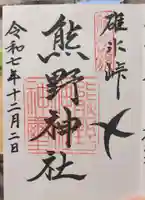 碓氷峠
熊野神社
令和七年十二月二日